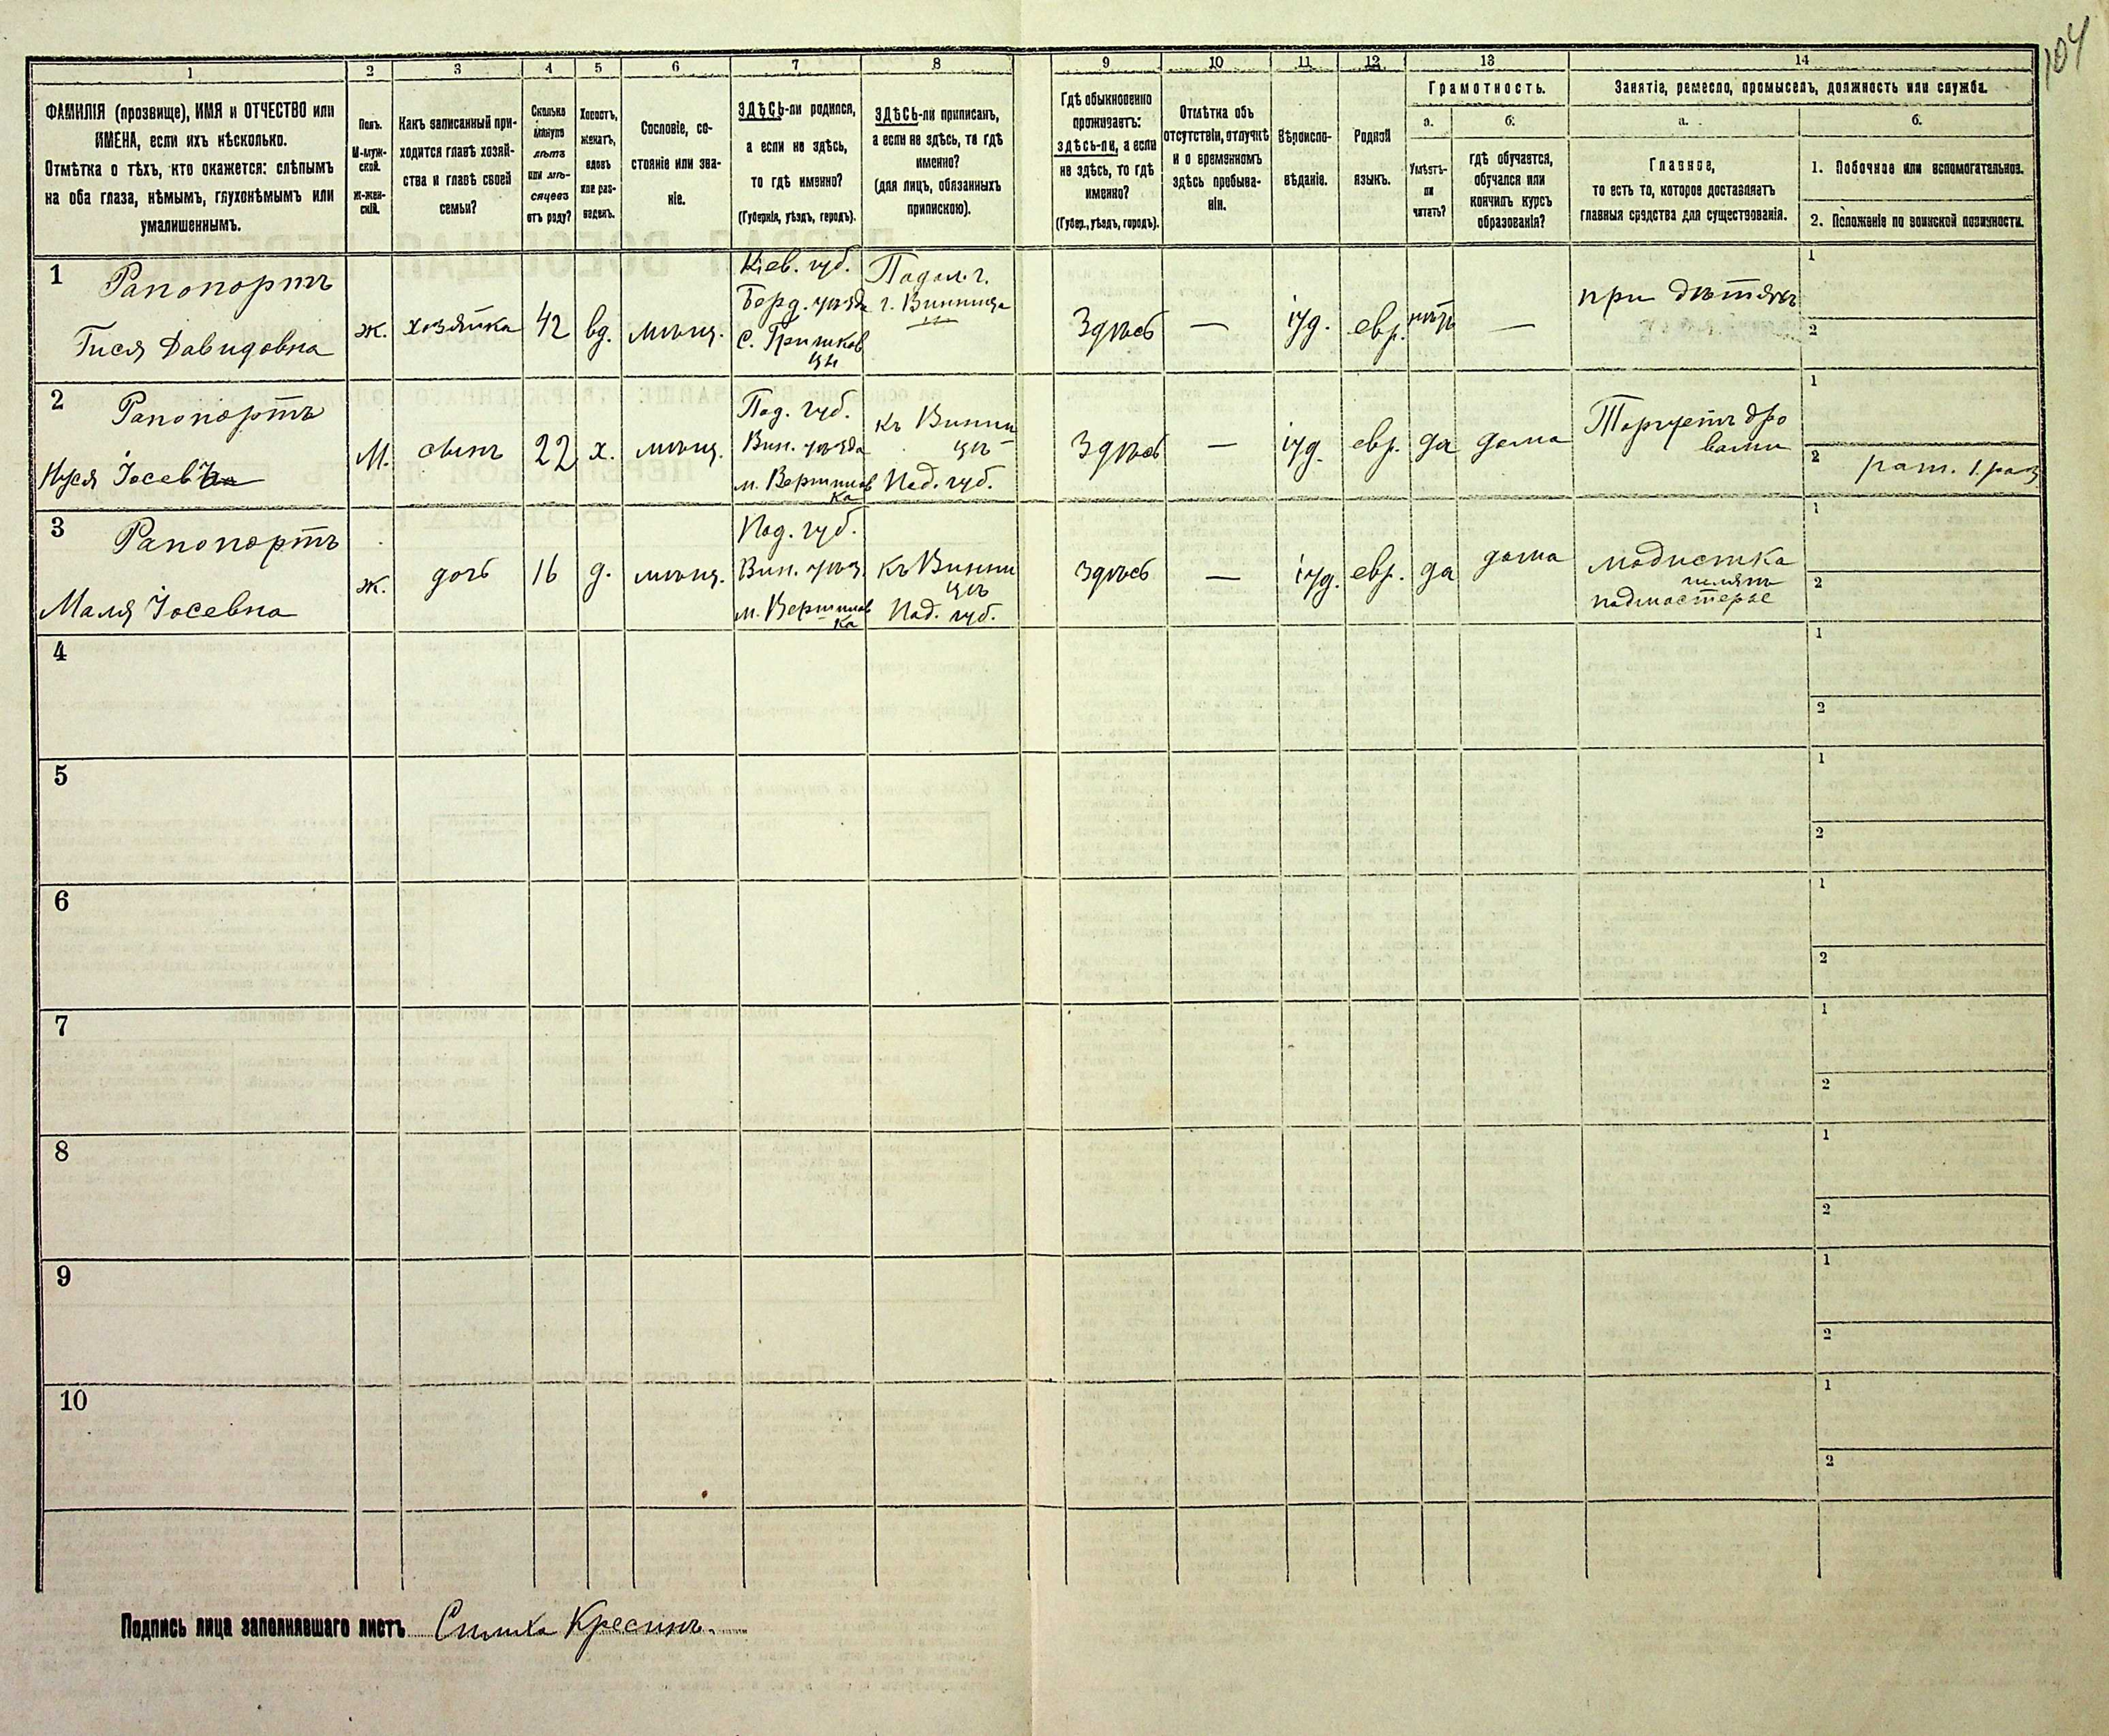 104
1 2 3 4 5 6 7 8 9 10 11 12 13 14
ФАМИЛІЯ (прозвище), ИМЯ и ОТЧЕСТВО или
ИМЕНА, если ихъ нѣсколько.
Отмѣтка о тѣхъ, кто окажется: слѣпымъ
на оба глаза, нѣмымъ, глухонѣмымъ или
умалишеннымъ.
Полъ.
М-муж-
ской.
Ж-жен-
скій.
Какъ записанный при-
ходится главѣ хозяй-
ства и главѣ своей
семьи?
Сколько
минуло
лѣтъ
или мѣ-
сяцевъ
отъ роду?
Холостъ,
женатъ,
вдовъ
или раз-
веденъ.
Сословіе, со-
стояніе или зва-
ніе.
ЗДѢСЬ-ли родился,
а если не здѣсь,
то гдѣ именно?
(Губернія, уѣздъ, городъ).
ЗДѢСЬ-ли приписанъ,
а если не здѣсь, то гдѣ
именно?
(для лицъ, обязанныхъ
припискою).
Гдѣ обыкновенно
проживаетъ:
здѣсь-ли, а если
не здѣсь, то гдѣ
именно?
(Губер., уѣздъ, городъ).
Отмѣтка объ
отсутствіи, отлучкѣ
и о временномъ
здѣсь пребыва-
ніи.
Вѣроиспо-
вѣданіе.
Родной
языкъ.
Грамотность.
а.
Умѣетъ-
ли
читать?
б.
гдѣ обучается,
обучался или
кончилъ курсъ
образованія?
Занятіе, ремесло, промыселъ, должность или служба.
а.
Главное,
то есть то, которое доставляетъ
главныя средства для существованія.
б.
1. Побочное или вспомогательное.
2. Положеніе по воинской повинности.
1
Рапопортъ
Гися Давидовна
ж.
хозяйка
42
вд.
мѣщ.
Кіев. губ.
Берд. уѣзда
с. Гришков
цы
Подол. г.
г. Винница
Здѣсь
—
іуд.
евр.
нѣтъ
—
при дѣтяхъ
1
2
2
Рапопортъ
Нуся Іосев
М.
сынъ
22
х.
мѣщ.
Под. губ.
Вин. уѣзда
м. Вороновиц
ка
къ Винни
цѣ
Под. губ.
Здѣсь
—
іуд.
евр.
да
дома
Торгуетъ дро
вами
1
2 рат. 1. раз
3
Рапопортъ
Маля Іосевна
ж.
дочь
16
д.
мѣщ.
Под. губ.
Вин. уѣз.
къ Винни
цѣ
Под. губ.
здѣсь
—
іуд.
евр.
да
дома
модистка
шляпъ
подмастерье
1
2
4
1
2
5
1
2
6
1
2
7
1
2
8
1
2
9
1
2
10
1
2
Подпись лица заполнявшаго листъ Симха Кресинъ.